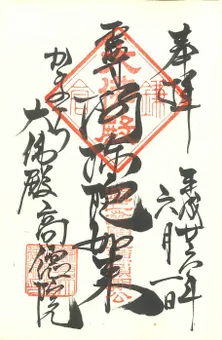 奉拝
平成廿六年
六月一日
阿弥陀如来
かまくら
大佛殿高德院